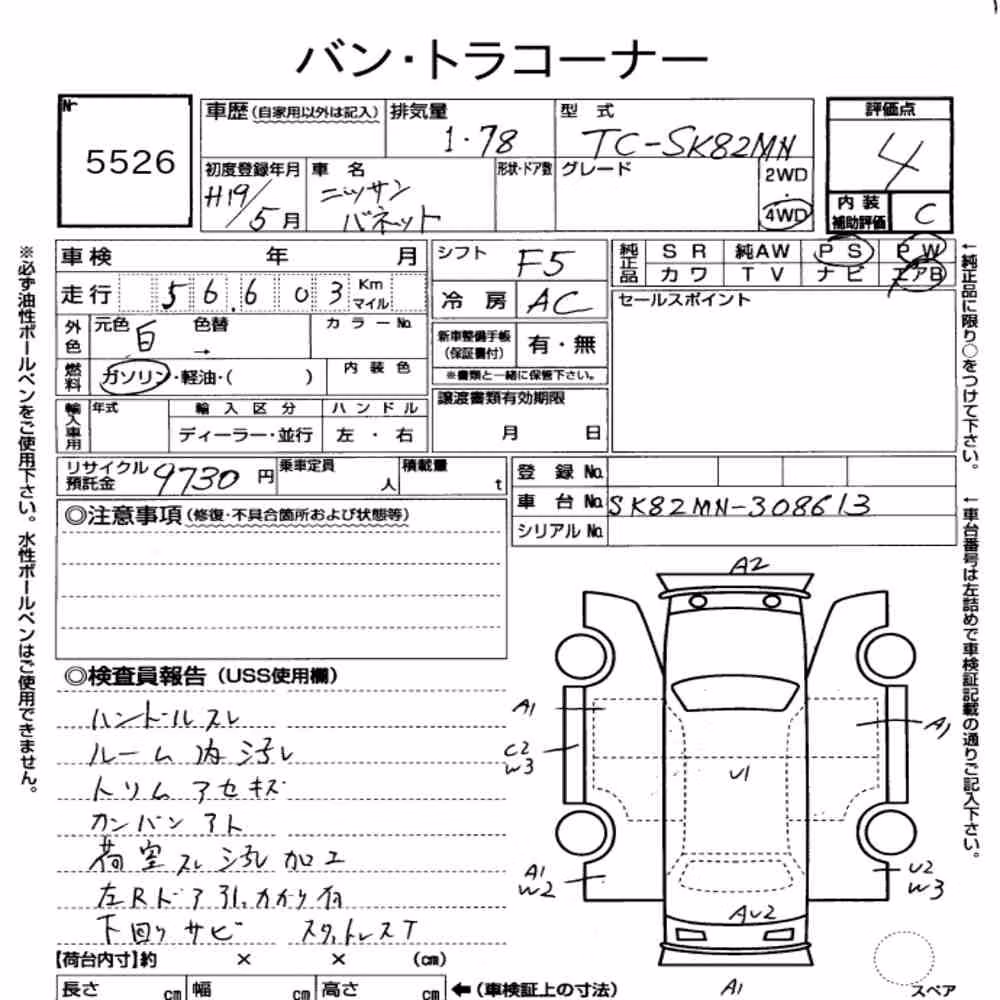 バン・トラコーナー
No
5526
車歴(自家用以外は記入)
排気量
1.78
型式
TC-SK82MN
評価点
4
初度登録年月
H19/5月
車名
ニッサン
バネット
形状・ドア数
グレード
2WD
・
4WD
内装
補助評価
C
車検 年 月
シフト
F5
純正品
SR 純AW PS PW
カワ TV ナビ エアB
走行 56,603 Km マイル
冷房
AC
セールスポイント
外色
元色 白
色替 →
カラーNo.
新車整備手帳
(保証書付)
有・無
※書類と一緒に保管下さい。
燃料
ガソリン・軽油・( )
内装色
譲渡書類有効期限
月 日
輸入車用
年式
輸入区分
ハンドル
ディーラー・並行
左・右
リサイクル
預託金
9730円
乗車定員
人
積載量
t
登録No.
車台No.
SK82MN-308613
シリアルNo.
◎注意事項(修復・不具合箇所および状態等)
◎検査員報告(USS使用欄)
ハンドルスレ
ルーム内汚レ
トリムアセキズ
カンバンアト
荷室スレ汚レ加工
左Rドア引っカカリ有
下回りサビ スタットレスT
【荷台内寸】約 × × (cm)
長さ cm
幅 cm
高さ cm
←(車検証上の寸法)
A2
A1
A1
C2
W3
U1
A1
W2
U2
W3
AU2
A1
スペア
※必ず油性ボールペンをご使用下さい。水性ボールペンはご使用できません。
←純正品に限り○をつけて下さい。
←車台番号は左詰めで車検証記載の通りご記入下さい。